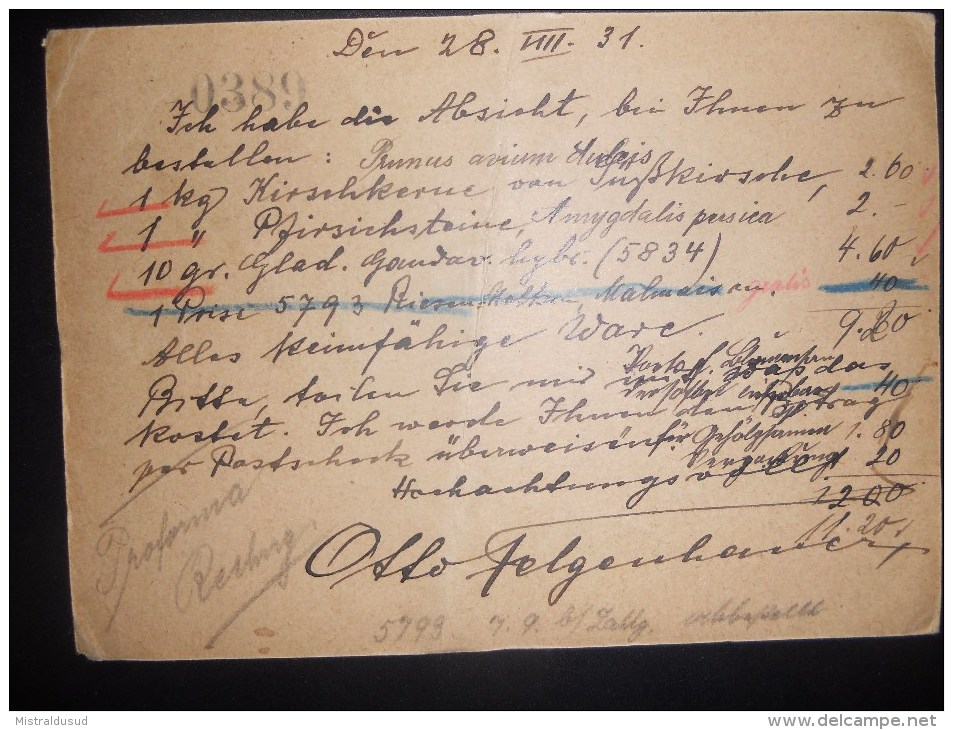 Den 28. VIII. 31.
0389
Ich habe die Absicht, bei Ihnen zu
bestellen: Prunus avium
1 kg Kirschkerne von Süßkirsche, 2.60
1 " Pfirsichsteine, Amygdalis persica 2.-
10 gr. Glad. Gandav. hybr. (5834) 4.60
1 Prise 5793 Riesen Malmaison. gratis 40
Alles keimfähige Ware. 9.60
Porto f. Blumensamen
Bitte, teilen Sie mir mit was das
40
kostet. Ich werde Ihnen den Betrag
für Gehölzsamen 1.80
per Postscheck überweisen
Verpackung 20
Hochachtungsvoll
12 00
11.20
Otto Felgenhauer
Proforma
Rechng
5793 7.9. b/ Zallg.
Mistraldusud
www.delcampe.net